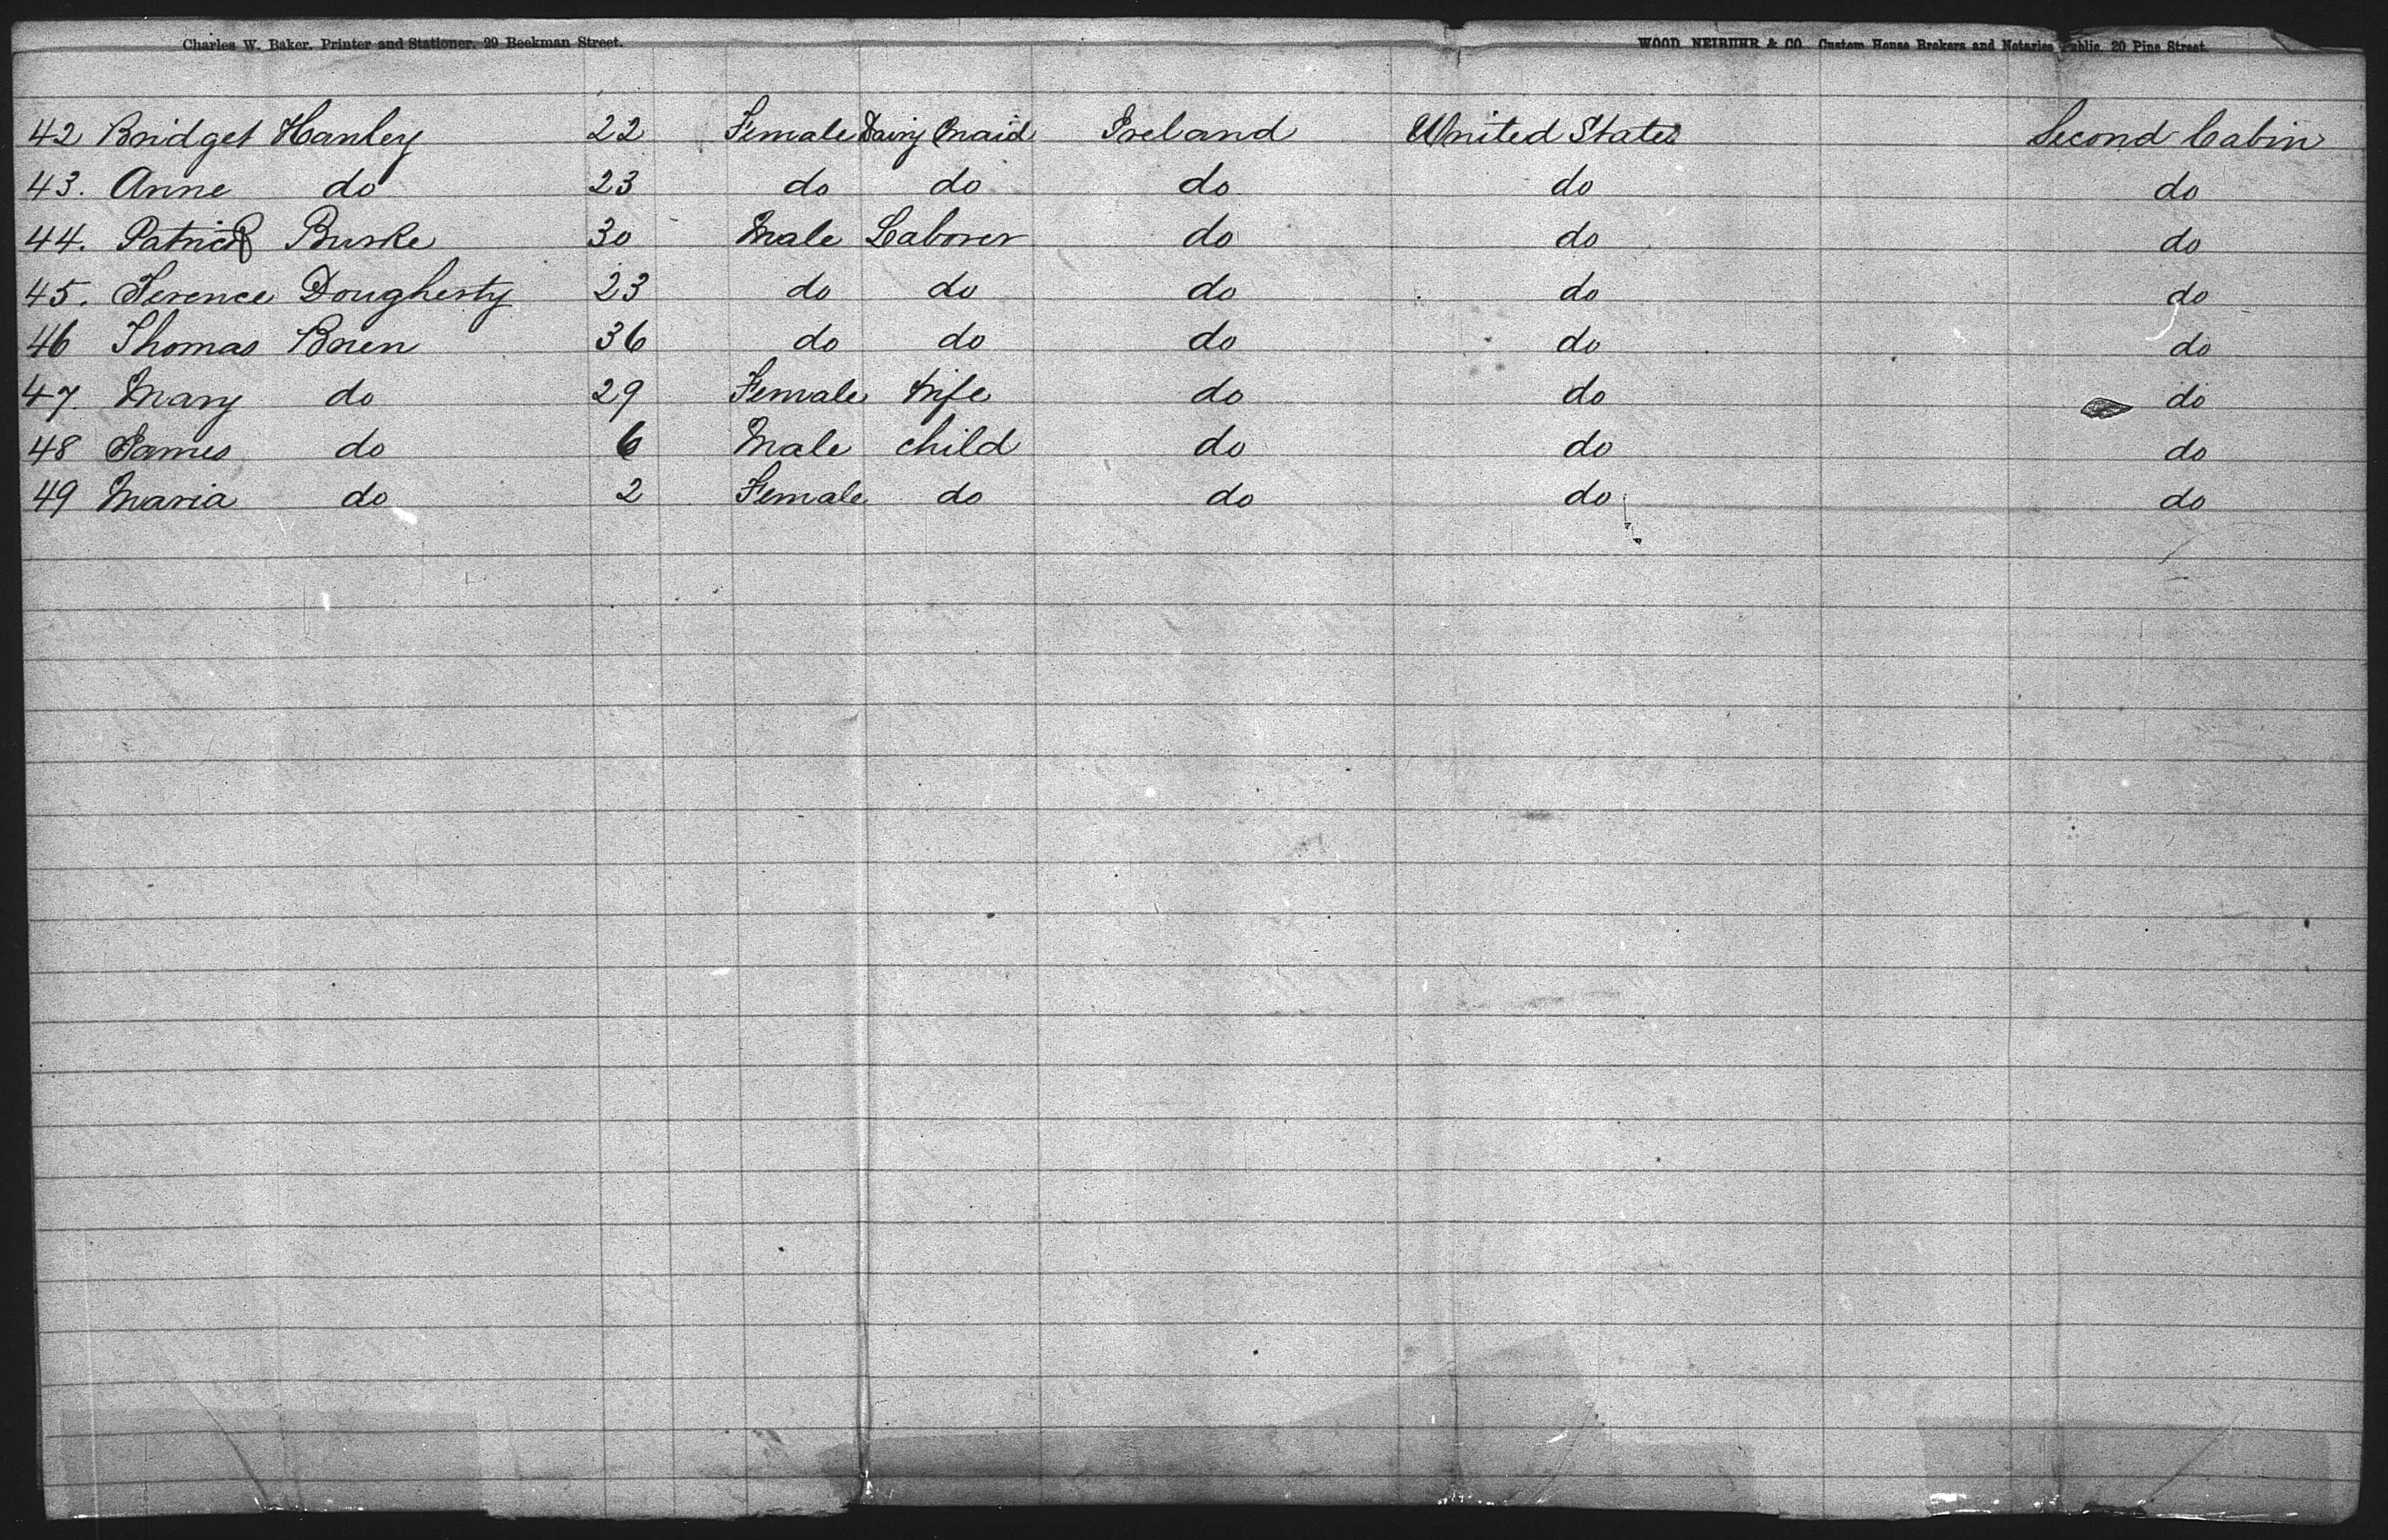 Charles W. Baker. Printer and Stationer. 29 Beekman Street. WOOD NEIBUHR & CO. Custom House Brokers and Notaries Public. 20 Pine Street.
42 Bridget Hanley 22 Female Dairy Maid Ireland United States Second Cabin
43. Anne do 23 do do do do do
44. Patrick Burke 30 Male Laborer do do do
45. Terence Dougherty 23 do do do do do
46 Thomas Brien 36 do do do do do
47. Mary do 29 Female Wife do do do
48 James do 6 Male child do do do
49 Maria do 2 Female do do do do